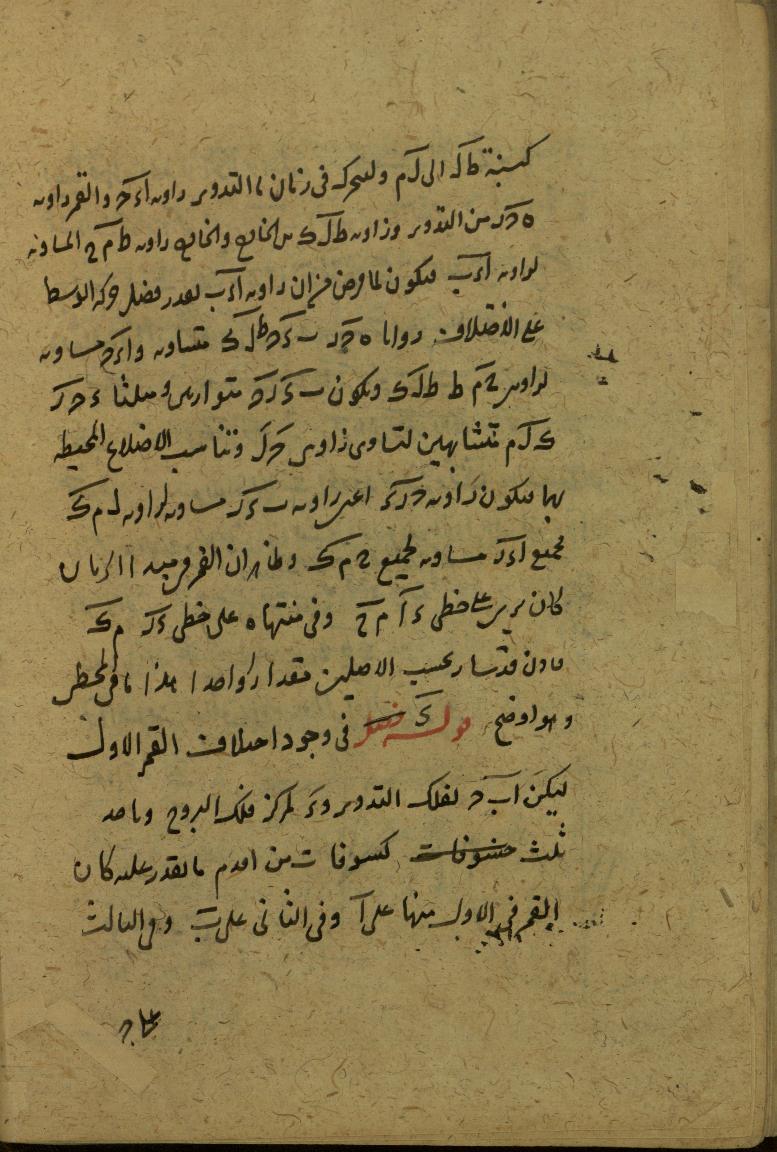 كنسبة طك الى لم وليتحرك فى زمان ما التدوير زاوية اءح والقمر زاوية
ه ح ر من التدوير وزاوية طلك من الخارج والخارج زاوية ط م ح المساوية
لزاوية اءب فيكون لما فرض من ان زاوية اءب بقدر فضل حركة الوسط
على الاختلاف زوايا ه ح ر ب ء ح طلك متساوية و اءح مساوية
لزاويتى ح م ط طلك ويكون ب ء ر ح متوازيين ومثلثا ء ح ر
ك ل م متشابهين لتساوى زاويتى ح ل وتناسب الاضلاع المحيطة
بها فيكون زاوية ح ر ء اعنى زاوية ب ء ر مساوية لزاوية ل م ك
فجميع اءر مساوية لجميع ح م ك وظاهر ان القمر فى مبدا الزمان
كان يرى على خطى ء ا م ح وفى منتهاه على خطى ء ر م ك
فاذن قد سار بحسب الاصلين مقدارا واحدا هذا ما فى المجسطى
وهو اوضح فى وجود اختلاف القمر الاول
ليكن اب ح لفلك التدوير و ء لمركز فلك البروج وناخذ
ثلث خسوفات كسوفات من اقدم ما نقدر عليه كان
القمر فى الاول منها على آ وفى الثانى على ب وفى الثالث
على ح